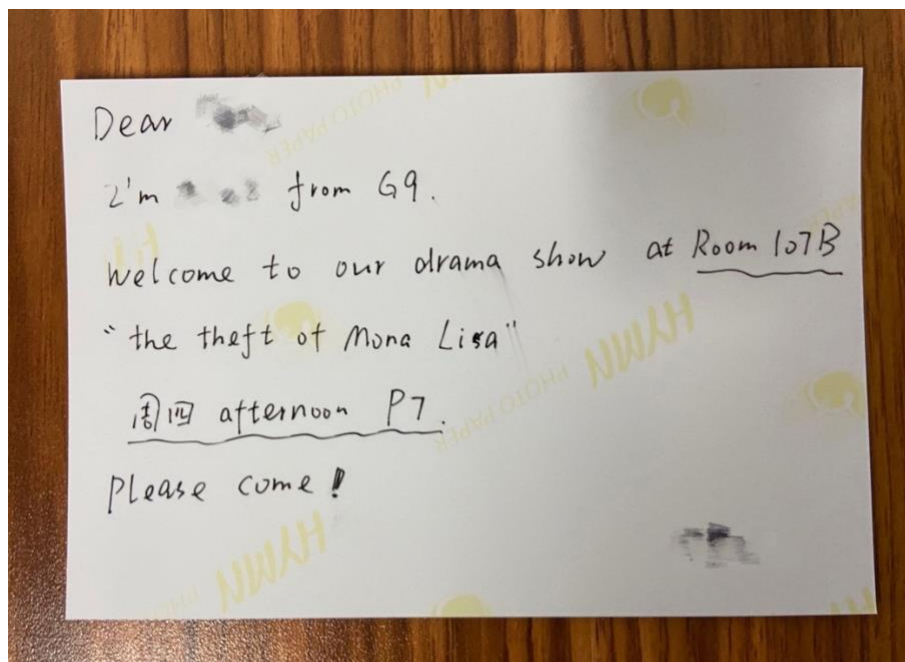 Dear
I'm from G9.
Welcome to our drama show at Room 107B
"the theft of Mona Lisa"
周四 afternoon P7.
Please come!
HYMN PHOTO PAPER
HYMN